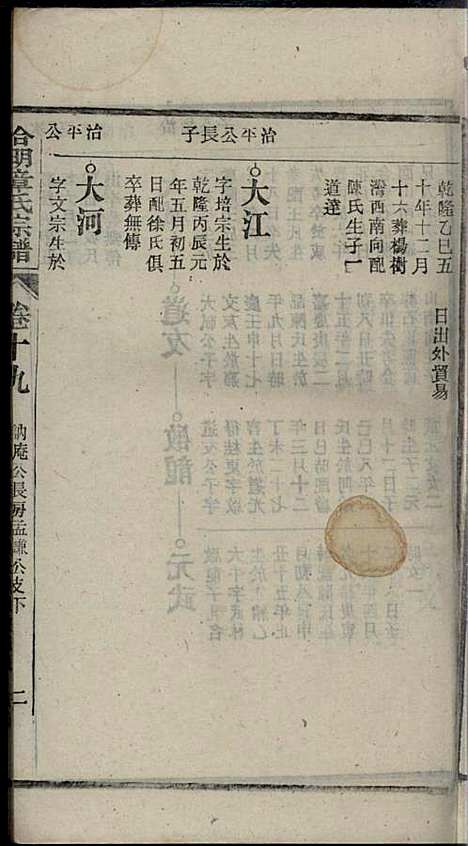 乾隆乙巳五
十年十二月
十六葬楊樹
灣西南向配
陳氏生子一
道達
日出外貿易
治平公長子
大江
字培宗生於
乾隆丙辰元
年五月初五
日配徐氏俱
卒葬無傳
治平公
大河
字文宗生於
合明章氏宗譜
卷十九
訥庵公長房孟謙公支下
二